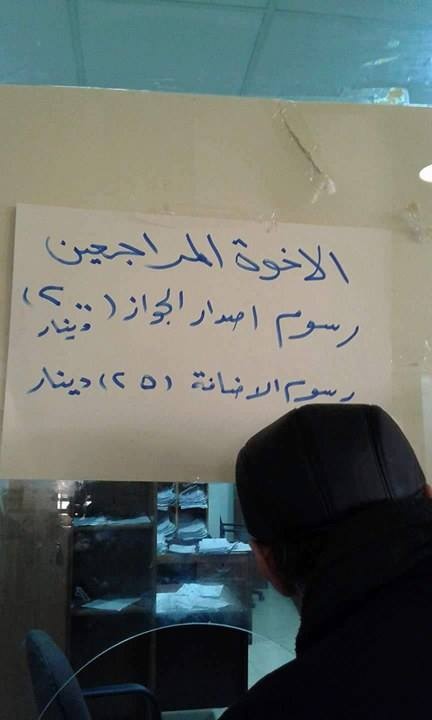 الاخوة المراجعين
رسوم اصدار الجواز (٢٠٠) دينار
رسوم الاضافة (٢٥) دينار